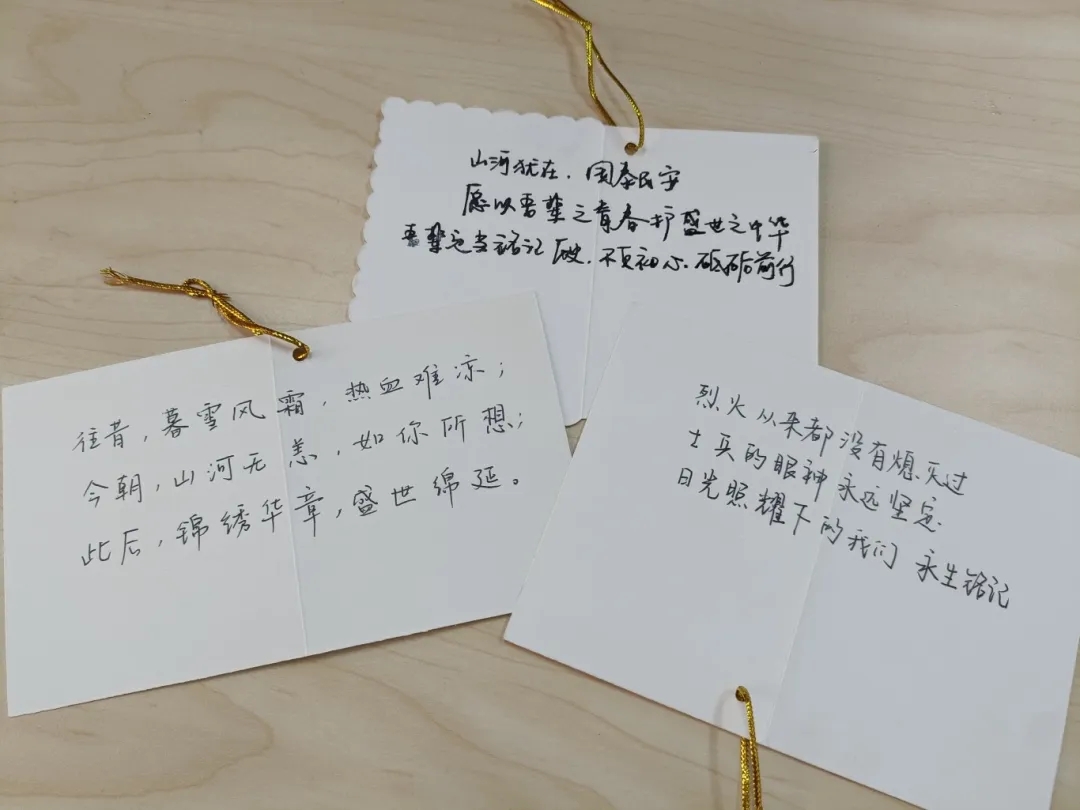 山河犹在,国泰民安
愿以吾辈之青春护盛世之中华
吾辈定当铭记历史,不负初心,砥砺前行
往昔,暮雪风霜,热血难凉;
今朝,山河无恙,如你所想;
此后,锦绣华章,盛世绵延。
烈火从来都没有熄灭过
士兵的眼神永远坚定
日光照耀下的我们 永生铭记